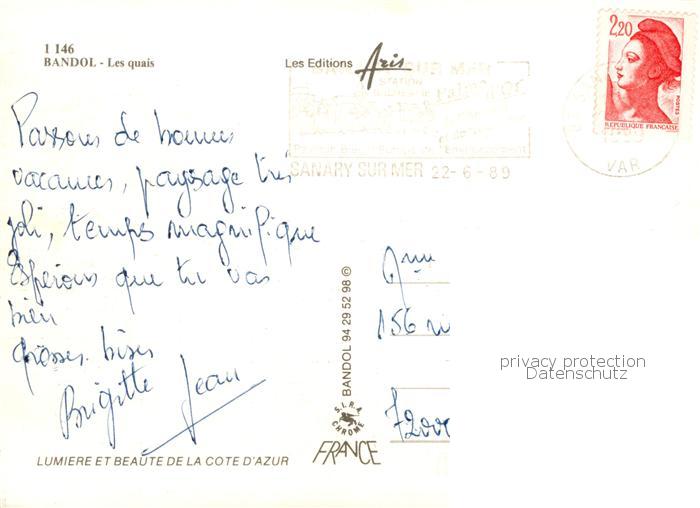 1 146
BANDOL - Les quais
Les Editions Aris
2,20
POSTES
REPUBLIQUE FRANÇAISE
SUR MER
STATION
SANARY SUR MER 22-6-89
VAR
Passons de bonnes
vacances, paysage très
joli, temps magnifique
Espérons que tu vas
bien
Grosses bises
Brigitte Jean
BANDOL 94 29 52 98 ©
S.I.R.A.
CHROME
FRANCE
LUMIERE ET BEAUTE DE LA COTE D'AZUR
Mme
156
72000
privacy protection
Datenschutz